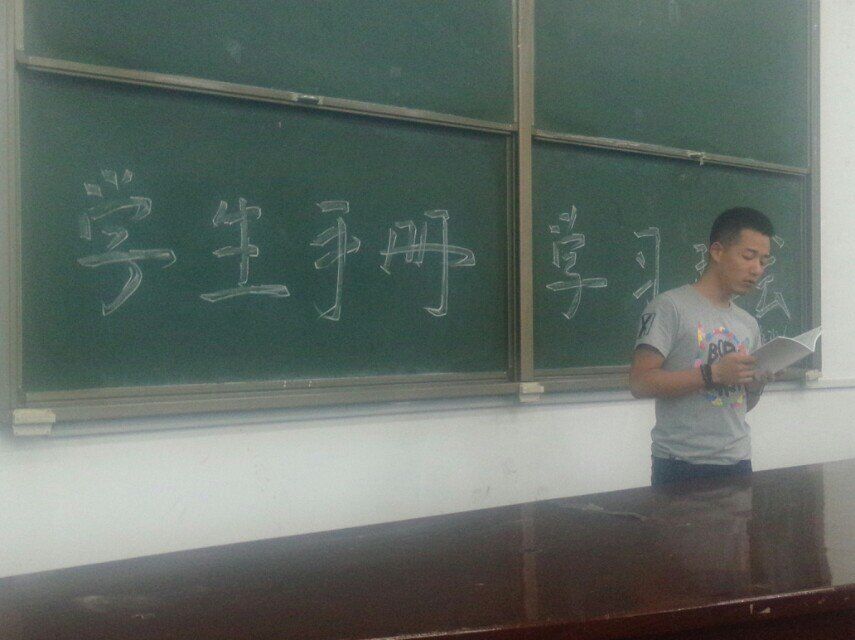 学生手册学习会